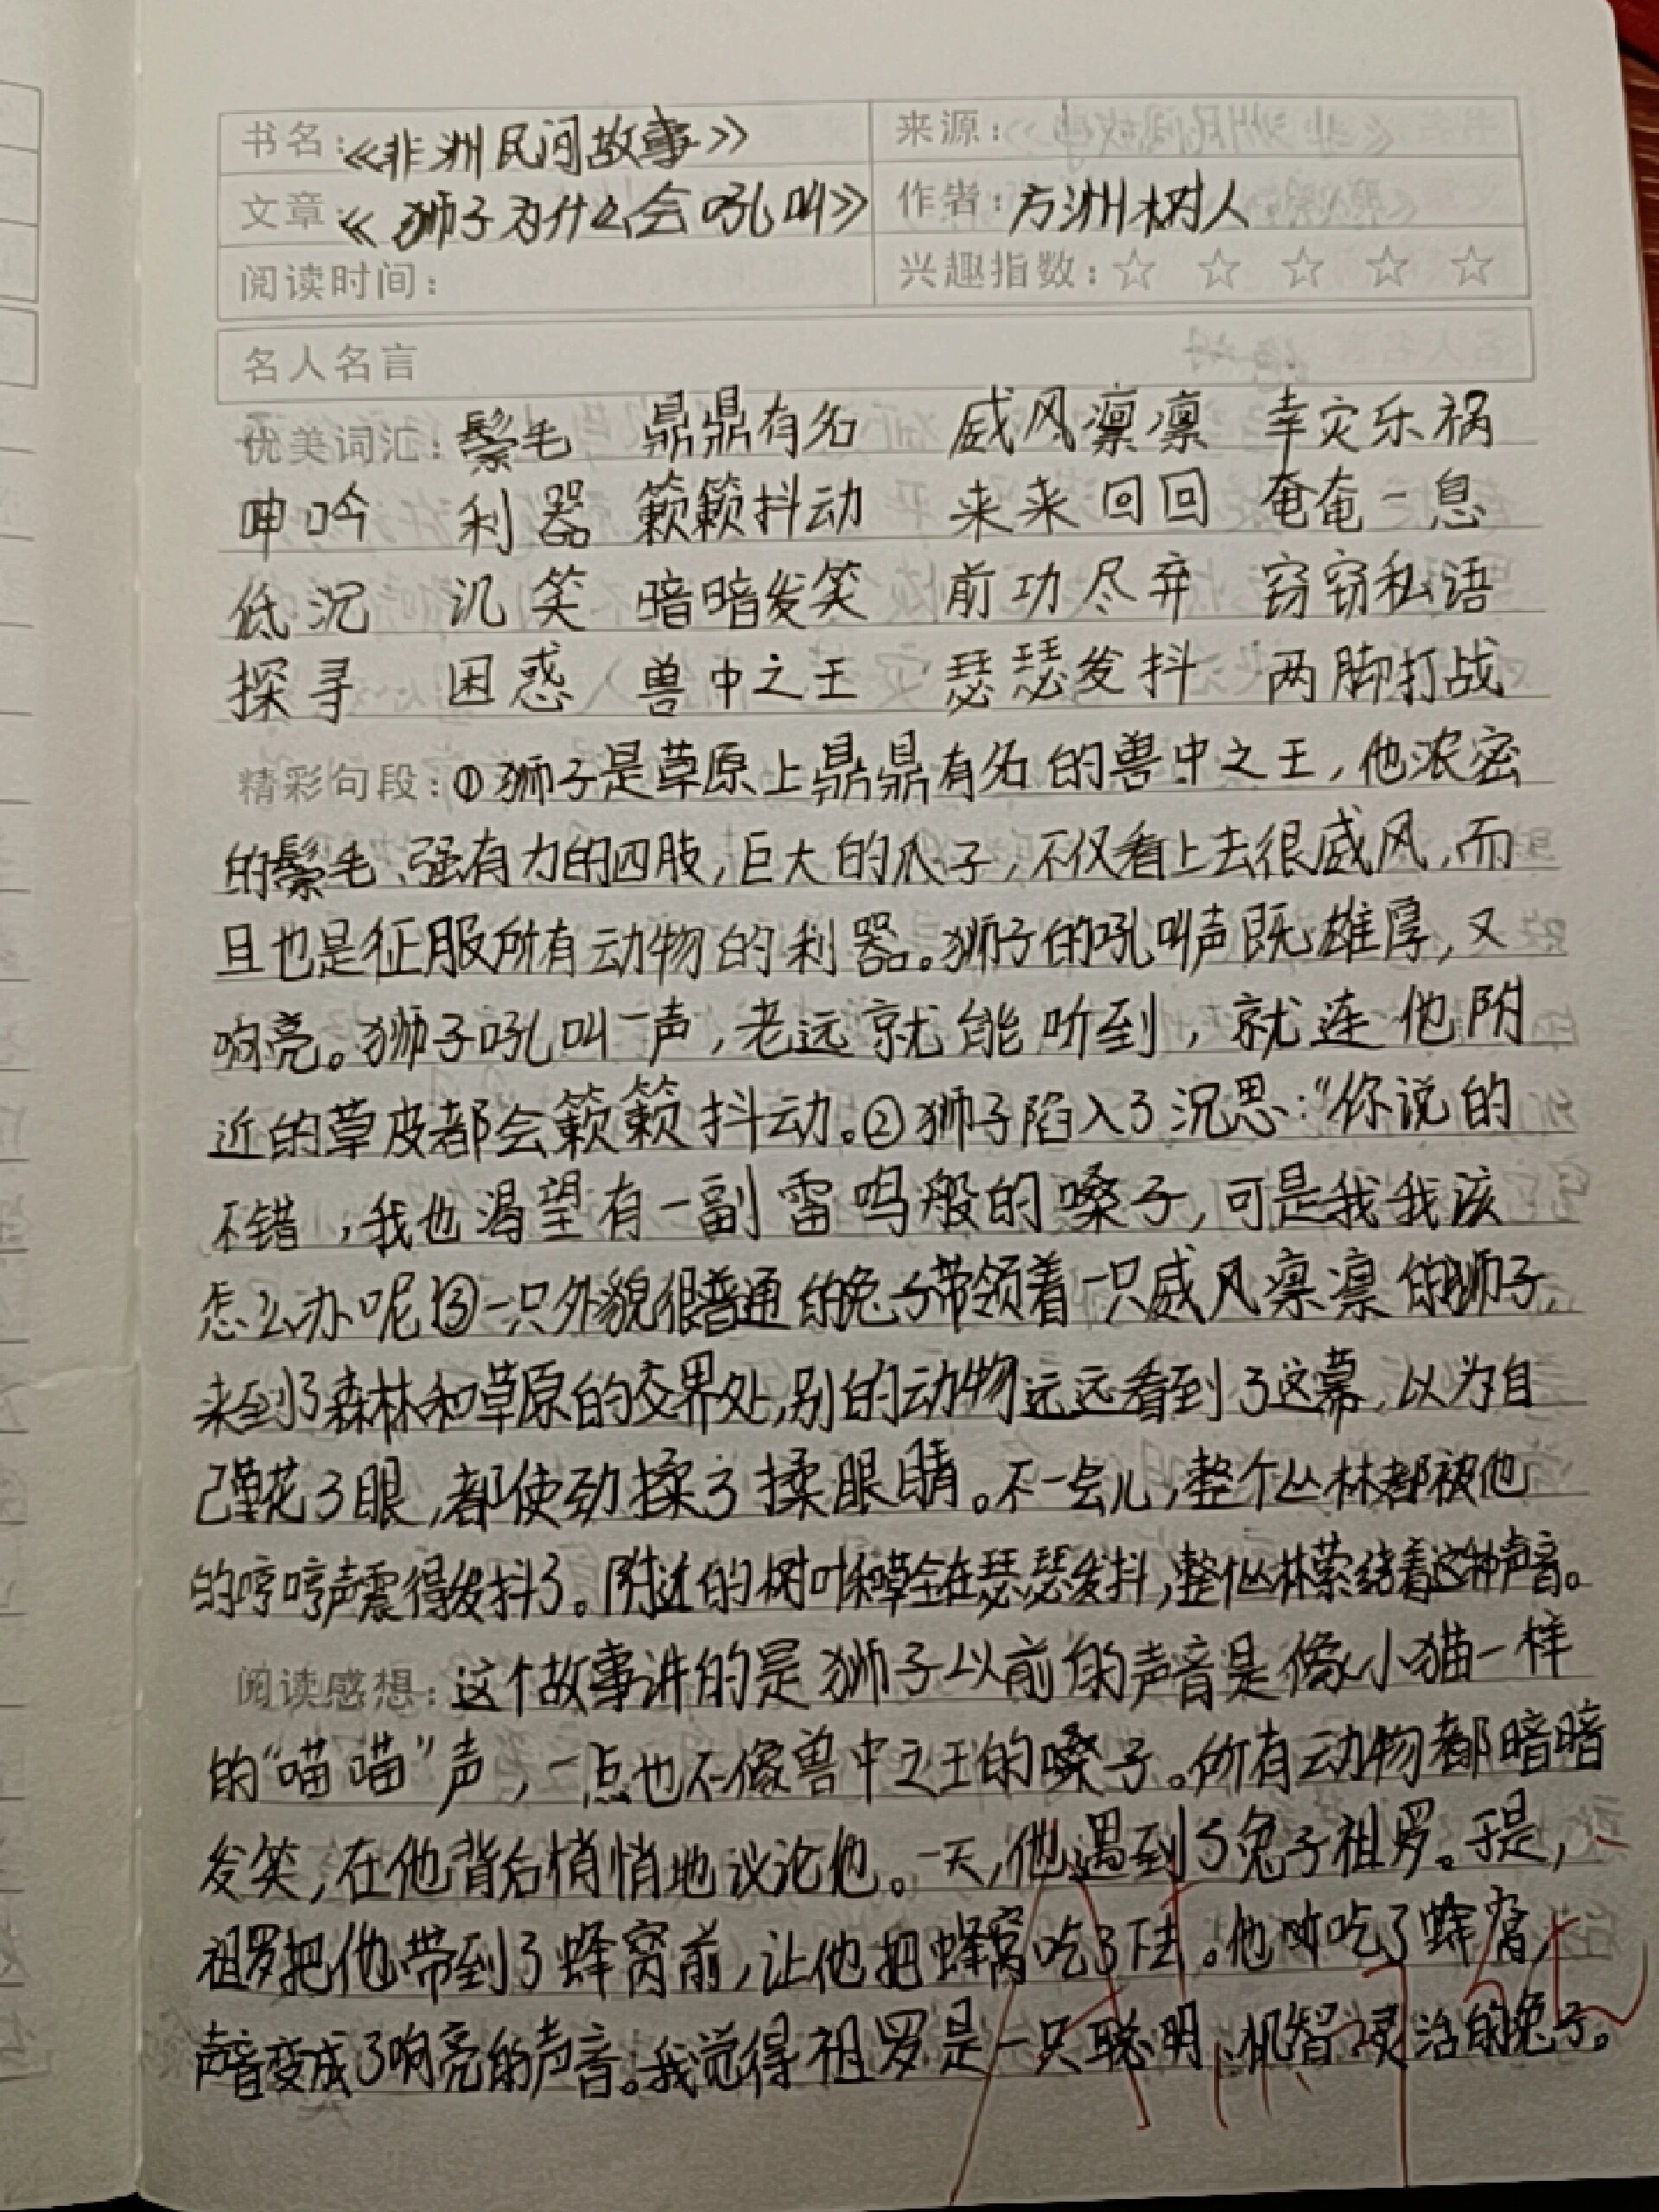 书名:《非洲民间故事》 来源:
文章:《狮子为什么会吼叫》 作者:方洲树人
阅读时间: 兴趣指数:☆ ☆ ☆ ☆ ☆
名人名言
优美词汇:鬃毛 鼎鼎有名 威风凛凛 幸灾乐祸
呻吟 利器 簌簌抖动 来来回回 奄奄一息
低沉 讥笑 暗暗发笑 前功尽弃 窃窃私语
探寻 困惑 兽中之王 瑟瑟发抖 两脚打战
精彩句段:①狮子是草原上鼎鼎有名的兽中之王,他浓密
的鬃毛、强有力的四肢,巨大的爪子,不仅看上去很威风,而
且也是征服所有动物的利器。狮子的吼叫声既雄厚,又
响亮。狮子吼叫一声,老远就能听到,就连他附
近的草皮都会簌簌抖动。②狮子陷入了沉思:“你说的
不错,我也渴望有一副雷鸣般的嗓子,可是我我该
怎么办呢③一只外貌很普通的兔子带领着一只威风凛凛的狮子,
来到了森林和草原的交界处,别的动物远远看到了这幕,以为自
己花了眼,都使劲揉了揉眼睛。不一会儿,整个丛林都被他
的哼哼声震得发抖了。附近的树叶和草全在瑟瑟发抖,整个丛林萦绕着这种声音。
阅读感想:这个故事讲的是狮子以前的声音是像小猫一样
的“喵喵”声,一点也不像兽中之王的嗓子。所有动物都暗暗
发笑,在他背后悄悄地议论他。一天,他遇到了兔子祖罗。于是,
祖罗把他带到了蜂窝前,让他把蜂窝吃了下去。他吃了蜂窝,
声音变成了响亮的声音。我觉得祖罗是一只聪明、机智、灵活的兔子。